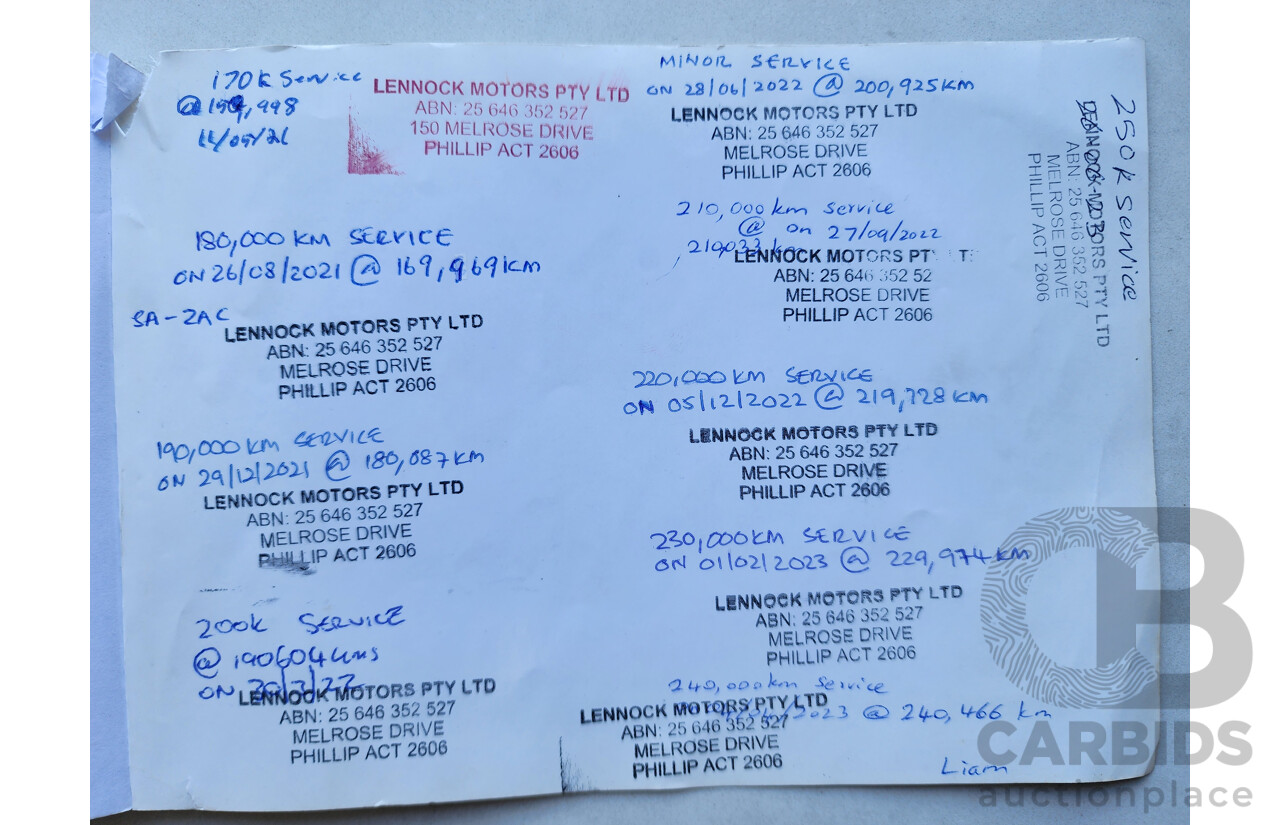 170K Service
@ 159,998
LENNOCK MOTORS PTY LTD
ABN: 25 646 352 527
150 MELROSE DRIVE
PHILLIP ACT 2606
180,000 KM SERVICE
ON 26/08/2021 @ 169,969KM
SA-ZAC
LENNOCK MOTORS PTY LTD
ABN: 25 646 352 527
MELROSE DRIVE
PHILLIP ACT 2606
190,000 KM SERVICE
ON 29/12/2021 @ 180,087KM
LENNOCK MOTORS PTY LTD
ABN: 25 646 352 527
MELROSE DRIVE
PHILLIP ACT 2606
200K SERVICE
@ 190604 kms
ON
LENNOCK MOTORS PTY LTD
ABN: 25 646 352 527
MELROSE DRIVE
PHILLIP ACT 2606
MINOR SERVICE
ON 28/06/2022 @ 200,925KM
LENNOCK MOTORS PTY LTD
ABN: 25 646 352 527
MELROSE DRIVE
PHILLIP ACT 2606
210,000 km Service
@ on 27/09/2022
km
LENNOCK MOTORS PT
ABN: 25 646 352 52
MELROSE DRIVE
PHILLIP ACT 2606
220,000KM SERVICE
ON 05/12/2022 @ 219,728KM
LENNOCK MOTORS PTY LTD
ABN: 25 646 352 527
MELROSE DRIVE
PHILLIP ACT 2606
230,000KM SERVICE
ON 01/02/2023 @ 229,974KM
LENNOCK MOTORS PTY LTD
ABN: 25 646 352 527
MELROSE DRIVE
PHILLIP ACT 2606
240,000km Service
2023 @ 240,466 km
LENNOCK MOTORS PTY LTD
ABN: 25 646 352 527
MELROSE DRIVE
PHILLIP ACT 2606
Liam
250K Service
PTY LTD
ABN: 25 646 352 527
MELROSE DRIVE
PHILLIP ACT 2606
CARBIDS
auctionplace